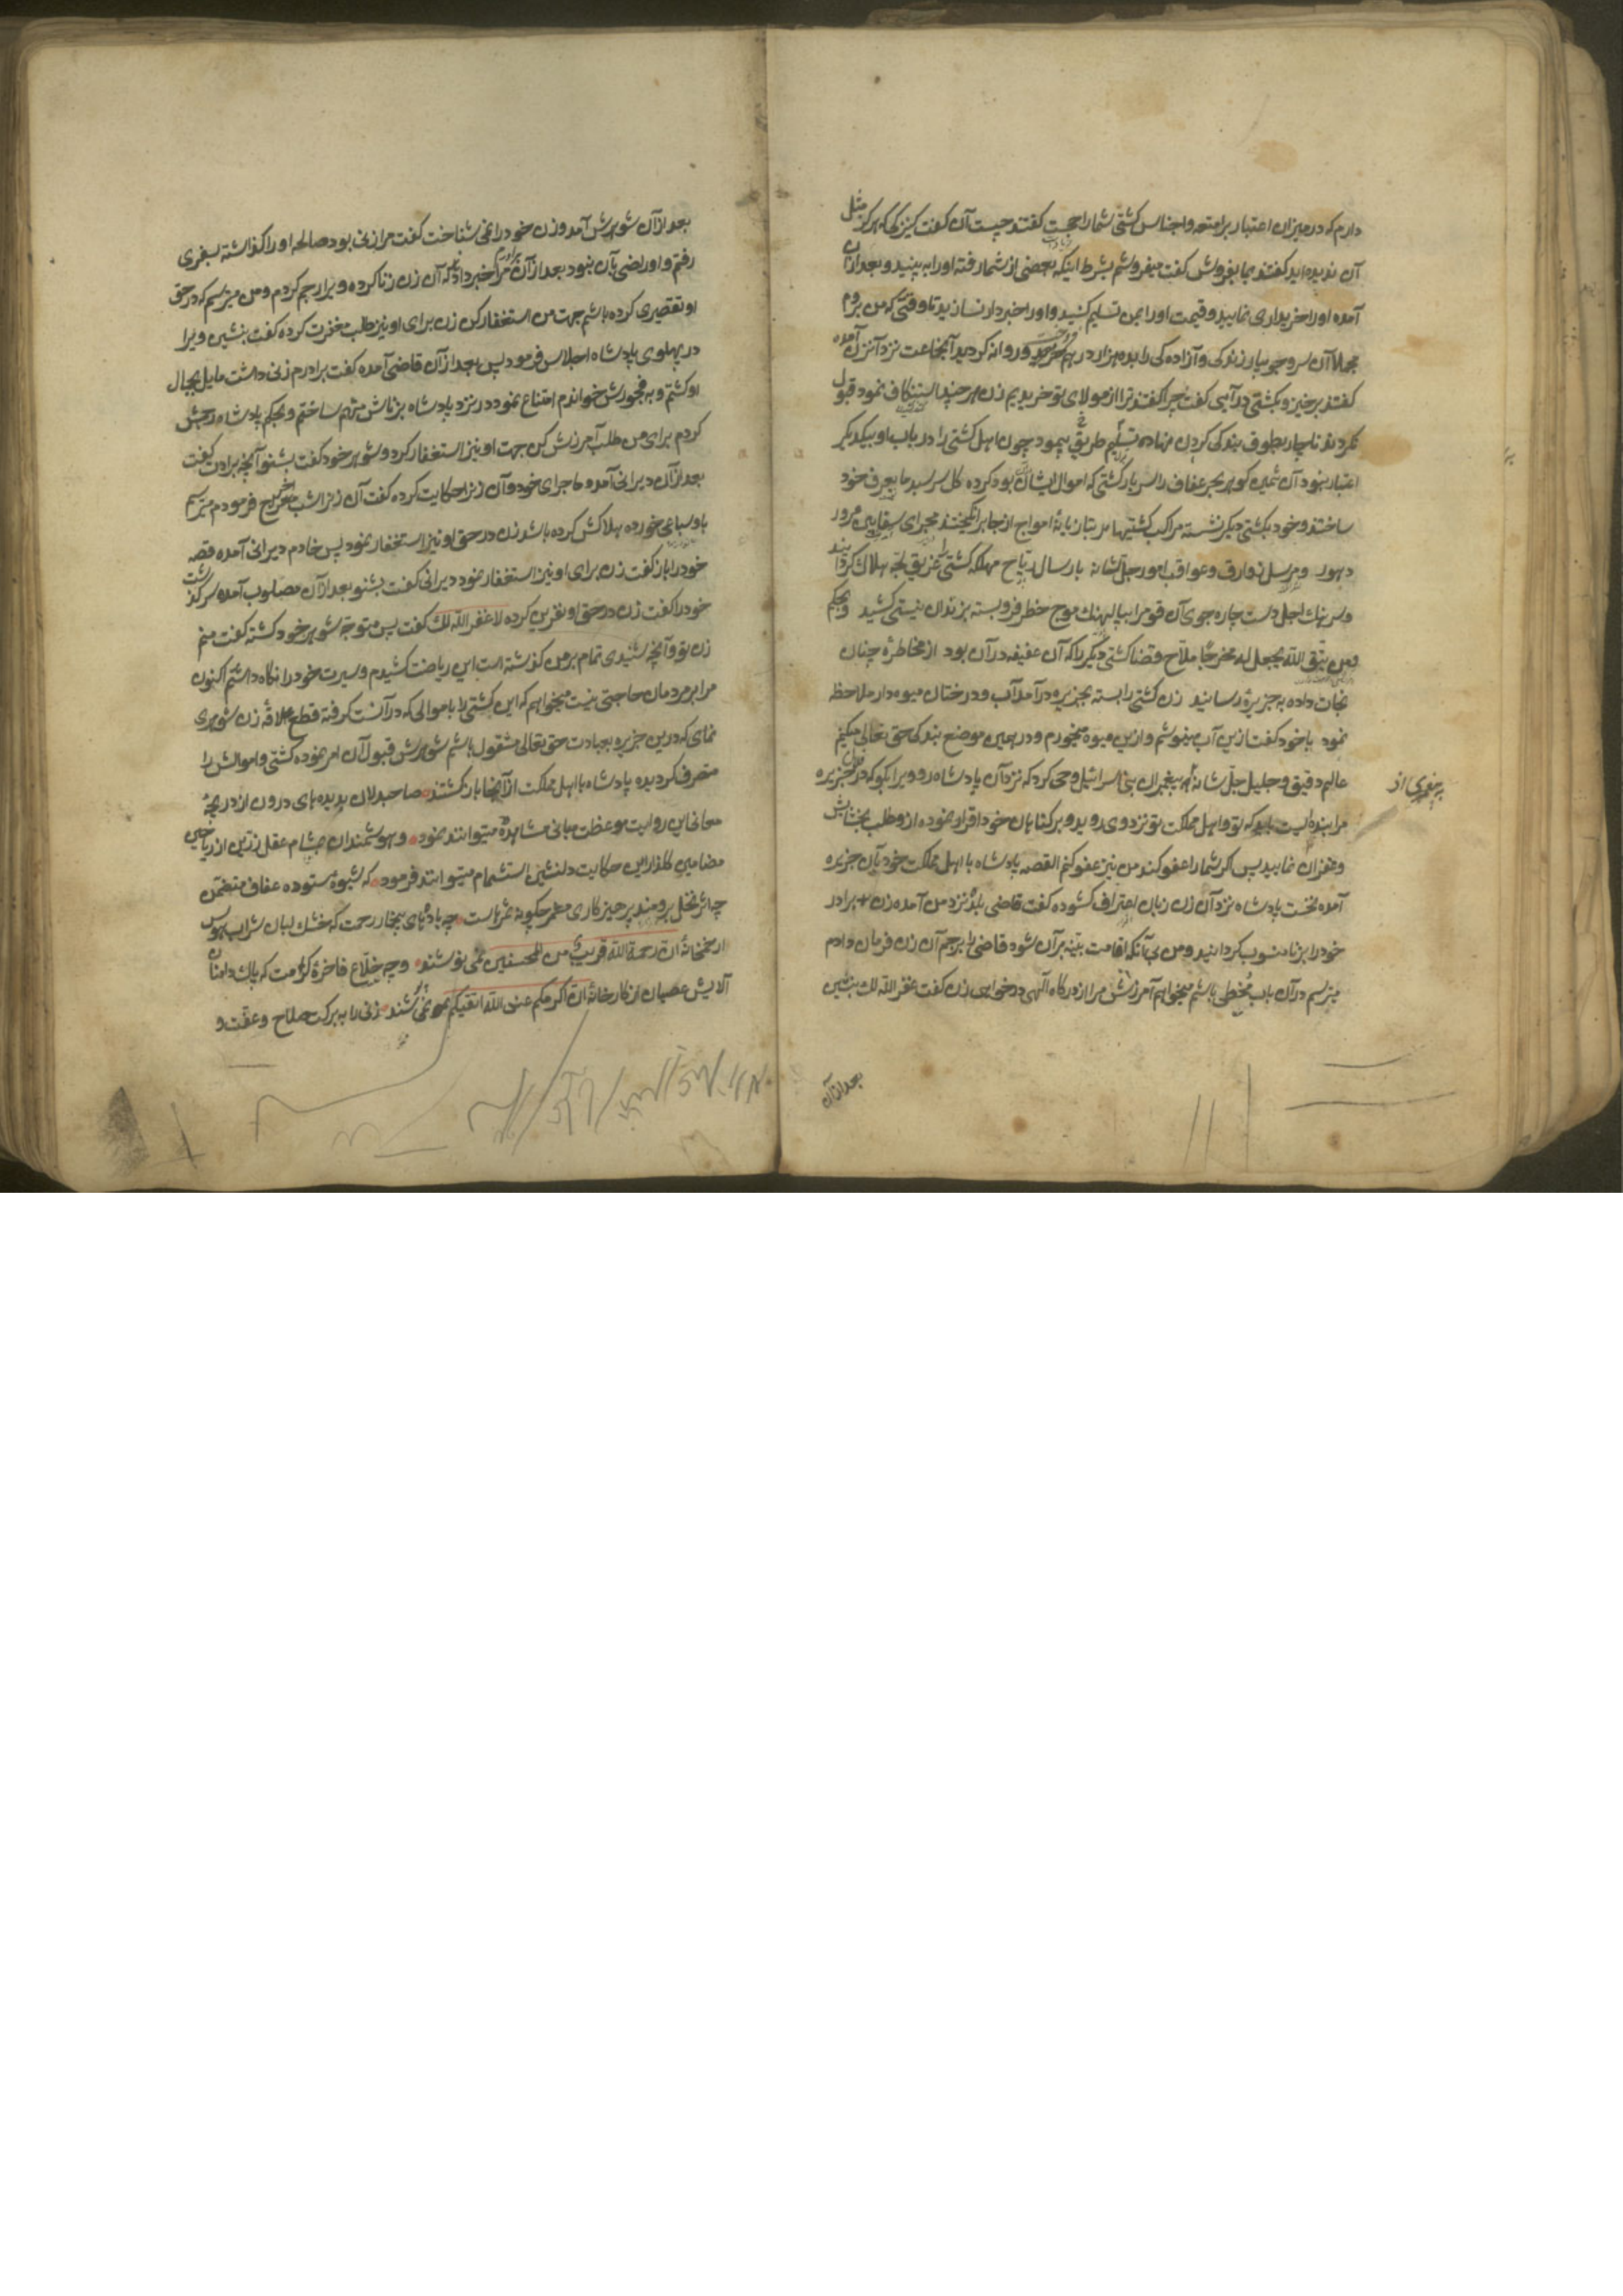 دارم که در میزان اعتبار بر امتعه و اجناس کشتی شما راجحست گفتند چیست آن گفت کنیزکی که هرگز مثل
آن ندیده‌اید گفتند بما بفروش گفت میفروشم بشرط اینکه بعضی از شما رفته او را به بینید و بعد از آن
آمده او را خریداری نمایید و قیمت او را بمن تسلیم کنید و او را خبردار نسازید تا وقتی که من بروم
مجملا آن سرو جویبار زندگی و آزاده‌کی را بده هزار درهم فروخت و روانه کردید آنجماعت نزد آنزن آمده
گفتند برخیز و بکشتی درآیی گفت چرا گفتند ترا از مولای تو خریدیم زن هر چند استنکاف نمود قبول
نکردند ناچار بطوق بندکی کردن نهاده تسلیم طریق پیمود چون اهل کشتی را در باب او بیکدیگر
اعتبار نبود آن ثمین کوهر بحر عفاف را سربار کشتی که اموال ایشان بود کرده کل سر سبد ما یعرف خود
ساختند و خود بکشتی دیگر نشسته مراکب کشتیها را بتازیانهٔ امواج از جا برانگیختند مجرای سفاین مرور
دهور و مرسل زوارق و عواقب امور جل شانه بارسال ریاح مهلکه کشتی را غریق لجه هلاک گردانید
و سرهنگ اجل دست چاره جوی آن قوم را بپالهنگ موج خطر فرو بسته بزندان نیستی کشید و بحکم
ومن یتق الله یجعل له مخرجا ملاح قضا کشتی دیگر را که آن عفیفه در آن بود از مخاطره چنان
نجات داده به جزیره رسانید زن کشتی را بسته بجزیره درآمد آب و درختان میوه‌دار ملاحظه
نمود با خود گفت ازین آب مینوشم و ازین میوه میخورم و در همین موضع بندکی حق تعالی میکنم
عالم دقیق و جلیل جل شانه به پیغمبران بنی اسرائیل وحی کرد که نزد آن پادشاه رو و ویرا بگو که در فلان جزیره
به پیغمبری از
مرا بنده‌ایست باید که تو و اهل مملکت تو نزد وی روید و بر گناهان خود اقرار نموده از و طلب بخشایش
و غفران نمایید پس اگر شما را عفو کند من نیز عفو کنم القصه پادشاه با اهل مملکت خود بآن جزیره
آمده نخست پادشاه نزد آن زن زبان اعتراف کشوده گفت قاضی بلد نزد من آمده زن برادر
خود را بزنا منسوب گردانید و من بی آنکه اقامت بینه بر آن شود قاضی را برجم آن زن فرمان دادم
میترسم در آن باب مخطی باشم میخواهم آمرزش مرا از درگاه الهی درخواهی زن گفت غفر الله لک بنشین
بعد از آن
بعد از آن شوهرش آمد و زن خود را نمی شناخت گفت مرا زنی بود صالحه او را گذاشته بسفری
رفتم و او راضی بآن نبود بعد از آن برادرم مرا خبر داد که آن زن زنا کرده ویرا رجم کردم و من میترسم که در حق
او تقصیری کرده باشم جهت من استغفار کن زن برای او نیز طلب مغفرت کرده گفت بنشین ویرا
در پهلوی پادشاه اجلاس فرمود پس بعد از آن قاضی آمده گفت برادرم زنی داشت مایل بجمال
او کشتم و به فجورش خواندم امتناع نمود در نزد پادشاه بزناش متهم ساختم و بحکم پادشاه رجمش
کردم برای من طلب آمرزش کن جهت او نیز استغفار کرد و شوهر خود گفت بشنو آنچه برادرت گفت
بعد از آن دیرانی آمده ماجرای خود و آن زنرا حکایت کرده گفت آن زنرا شب اخراج فرمودم میترسم
باو سباعی خورده هلاکش کرده باشد زن در حق او نیز استغفار نمود پس خادم دیرانی آمده قصه
خود را باز گفت زن برای او نیز استغفار نمود دیرانی گفت بشنو بعد از آن مصلوب آمده سرگذشت
خود را گفت زن در حق او نفرین کرده لا غفر الله لک گفت پس متوجه شوهر خود گشته گفت منم
زن تو و آنچه شنیدی تمام بر من گذشته است این ریاضت کشیدم و سیرت خود را نگاه داشتم اکنون
مرا بر مردمان حاجتی نیست میخواهم که این کشتی را با موالی که در آنست گرفته قطع علاقه زن شوهری
نمای که درین جزیره بعبادت حق تعالی مشغول باشم شوهرش قبول آن امر نموده کشتی و اموالش را
متصرف گردیده پادشاه با اهل مملکت از آنجا باز گشتند صاحبدلان بدیده‌های درون از دریچهٔ
معانی این روایت موعظت مبانی مشاهده میتوانند نمود و هوشمندان بمشام عقل رزین از ریاحین
مضامین گلزار این حکایت دلنشین استشمام میتوانند فرمود که شیوهٔ ستوده عفاف متضمن
چه اثر نخل برومند پرهیزکاری مثمر چگونه ثمرهاست چه باده‌های بیخمار رحمت که خشک لبان شراب هوس
از خمخانهٔ ان رحمة الله قریب من المحسنین نمی نوشند و چه خلاع فاخرهٔ کرامت که پاک دامنان
آلایش عصیان از کارخانهٔ ان اکرمکم عند الله اتقیکم نمی پوشند زنی را به برکت صلاح و عفت و